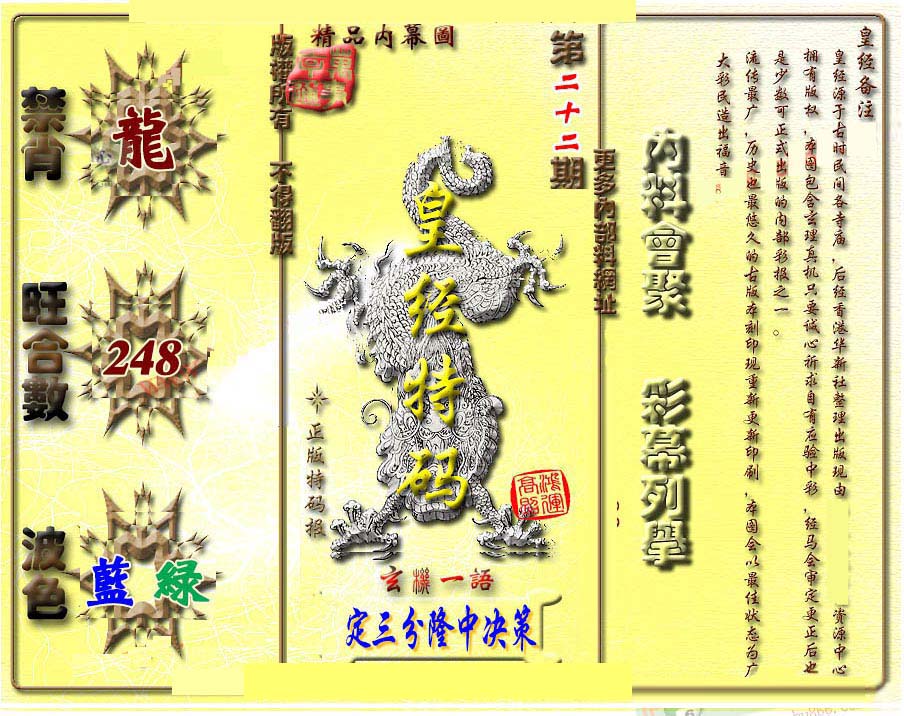 皇经备注
皇经源于古时民间各寺庙，后经香港华新社整理出版现由 资源中心
拥有版权，本图包含玄理真机只要诚心祈求自有应验中彩，经马会审定更正后也
是少数可正式出版的内部彩报之一。
流传最广，历史也最悠久的古版本刻印现重新更新印刷，本图会以最佳状态为广
大彩民造出福音。
內料會聚
彩幕列舉
更多內部料網址
第二十二期
精品内幕圖
版權所有 不得翻版
皇经特码
正版特码报
鴻運高照
玄機一語
定三分隆中决策
禁肖
龍
旺合數
248
波色
藍 綠